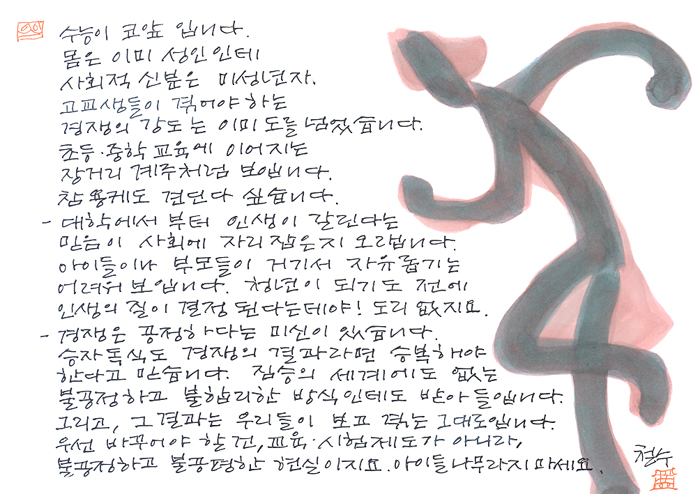 수능이 코앞 입니다.
몸은 이미 성인인데
사회적 신분은 미성년자.
고교생들이 겪어야 하는
경쟁의 강도는 이미 도를 넘었습니다.
초등·중학 교육에 이어지는
장거리 계주처럼 보입니다.
참 용케도 견딘다 싶습니다.
- 대학에서 부터 인생이 갈린다는
믿음이 사회에 자리 잡은지 오랩니다.
아이들이나 부모들이 거기서 자유롭기는
어려워 보입니다. 청년이 되기도 전에
인생의 질이 결정 된다는데야! 도리 없지요.
- 경쟁은 공정하다는 미신이 있습니다.
승자독식도 경쟁의 결과라면 승복해야
한다고 믿습니다. 짐승의 세계에도 없는
불공정하고 불합리한 방식인데도 받아들입니다.
그리고, 그 결과는 우리들이 보고 겪는 그대로입니다.
우선 바꾸어야 할 건, 교육·시험제도가 아니라,
불공정하고 불공평한 현실이지요. 아이들 나무라지 마세요.
철수